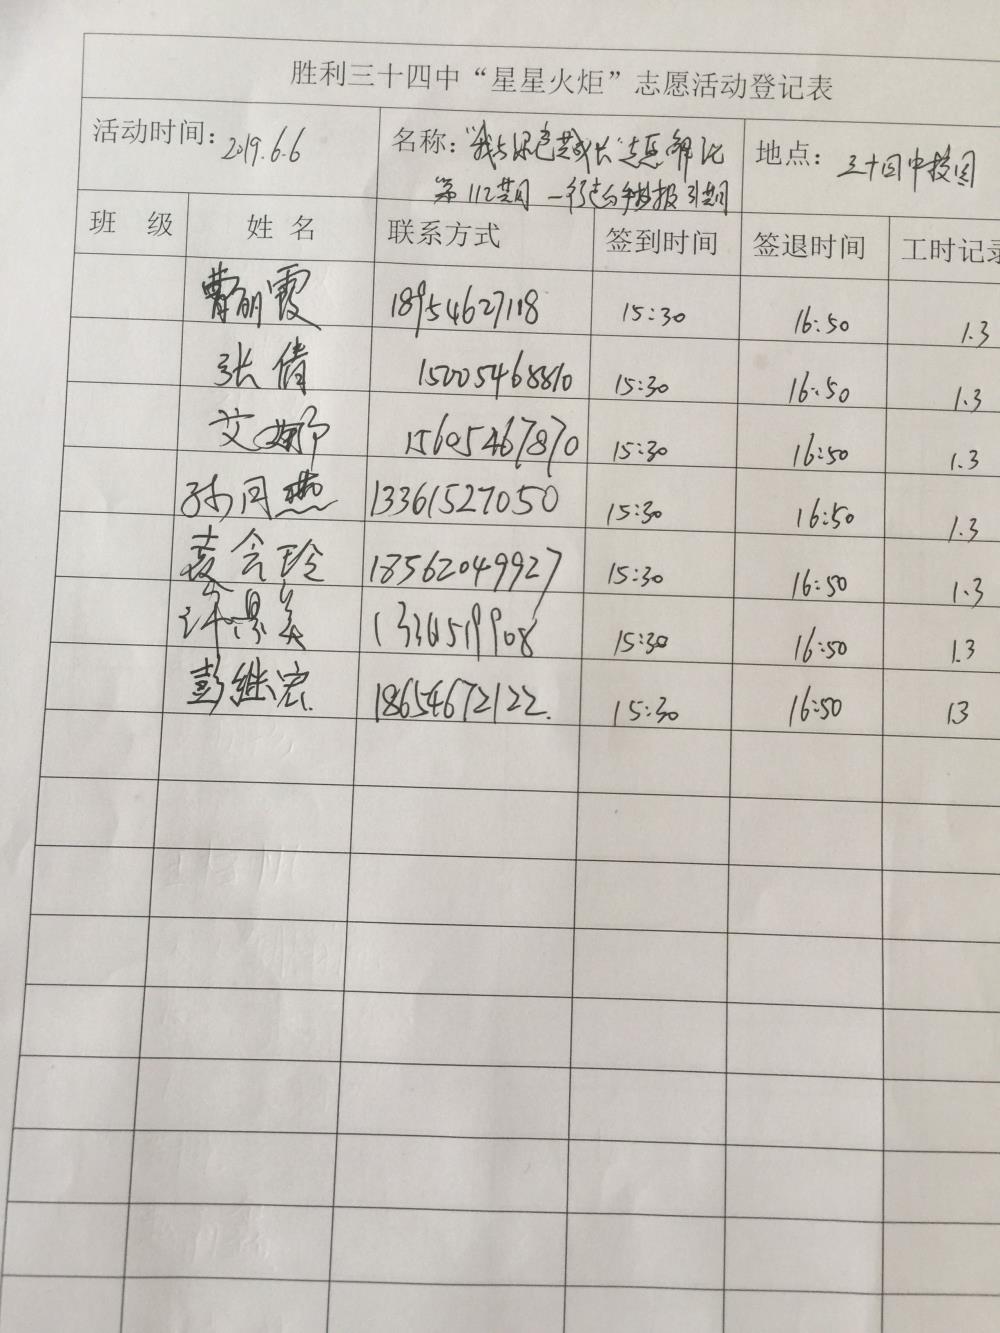 胜利三十四中“星星火炬”志愿活动登记表
活动时间：2019.6.6 名称：“我与绿色共成长”志愿 地点：三十四中校园
第112期
班 级 姓 名 联系方式 签到时间 签退时间 工时记录
曹丽霞 18954627118 15:30 16:50 1.3
张倩 15005468810 15:30 16:50 1.3
艾娜 15605467870 15:30 16:50 1.3
孙同燕 13361527050 15:30 16:50 1.3
袁会玲 18562049927 15:30 16:50 1.3
许景美 15:30 16:50 1.3
彭继宏 18654672122. 15:30 16:50 13